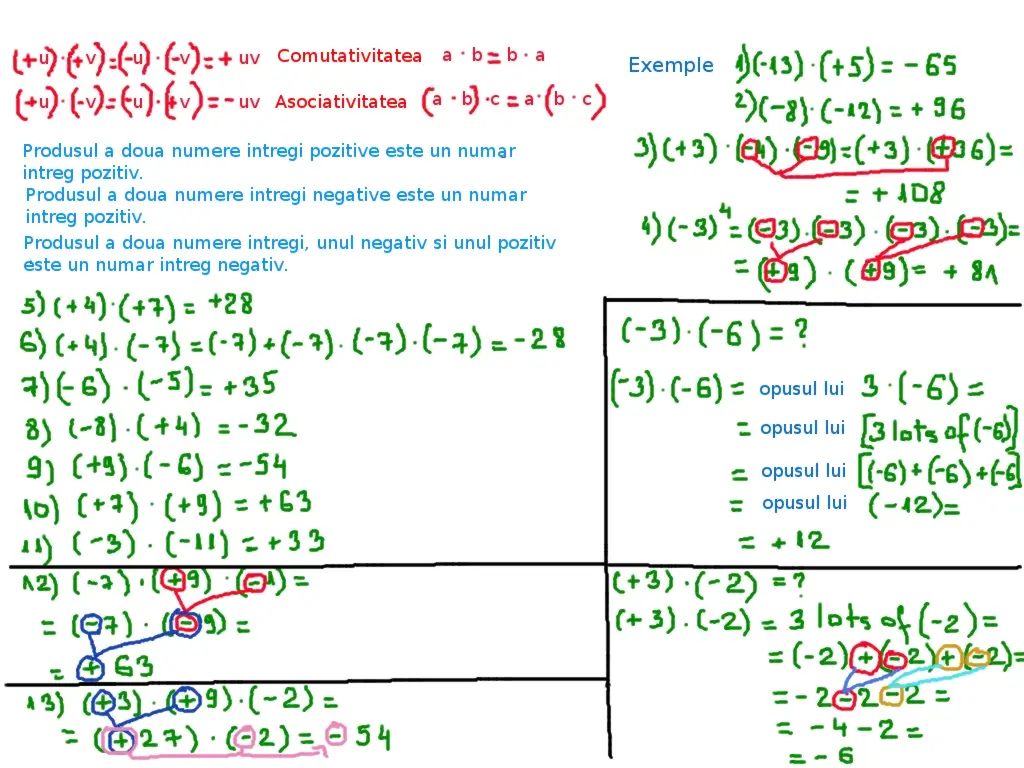 (+u)·(+v)=(-u)·(-v)=+uv Comutativitatea a·b=b·a
(+u)·(-v)=(-u)·(+v)=-uv Asociativitatea (a·b)·c=a·(b·c)
Produsul a doua numere intregi pozitive este un numar
intreg pozitiv.
Produsul a doua numere intregi negative este un numar
intreg pozitiv.
Produsul a doua numere intregi, unul negativ si unul pozitiv
este un numar intreg negativ.
Exemple 1)(-13)·(+5)=-65
2)(-8)·(-12)=+96
3)(+3)·(-4)·(-9)=(+3)·(+36)=
=+108
4)(-3)⁴=(-3)·(-3)·(-3)·(-3)=
=(+9)·(+9)=+81
5)(+4)·(+7)=+28
6)(+4)·(-7)=(-7)+(-7)·(-7)·(-7)=-28
7)(-6)·(-5)=+35
8)(-8)·(+4)=-32
9)(+9)·(-6)=-54
10)(+7)·(+9)=+63
11)(-3)·(-11)=+33
12)(-7)·(+9)·(-1)=
=(-7)·(-9)=
=+63
13)(+3)·(+9)·(-2)=
=(+27)·(-2)=-54
(-3)·(-6)=?
(-3)·(-6)= opusul lui 3·(-6)=
= opusul lui [3 lots of (-6)]
= opusul lui [(-6)+(-6)+(-6]
= opusul lui (-12)=
=+12
(+3)·(-2)=?
(+3)·(-2)=3 lots of (-2)=
=(-2)+(-2)+(-2)=
=-2-2-2=
=-4-2=
=-6